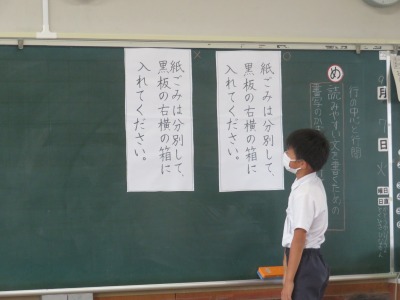 行の中心と行間
め
読みやすい文を書くための
紙ごみは分別して、
黒板の右横の箱に
入れてください。
紙ごみは分別して、
黒板の右横の箱に
入れてください。
月
日
火
曜日
日直